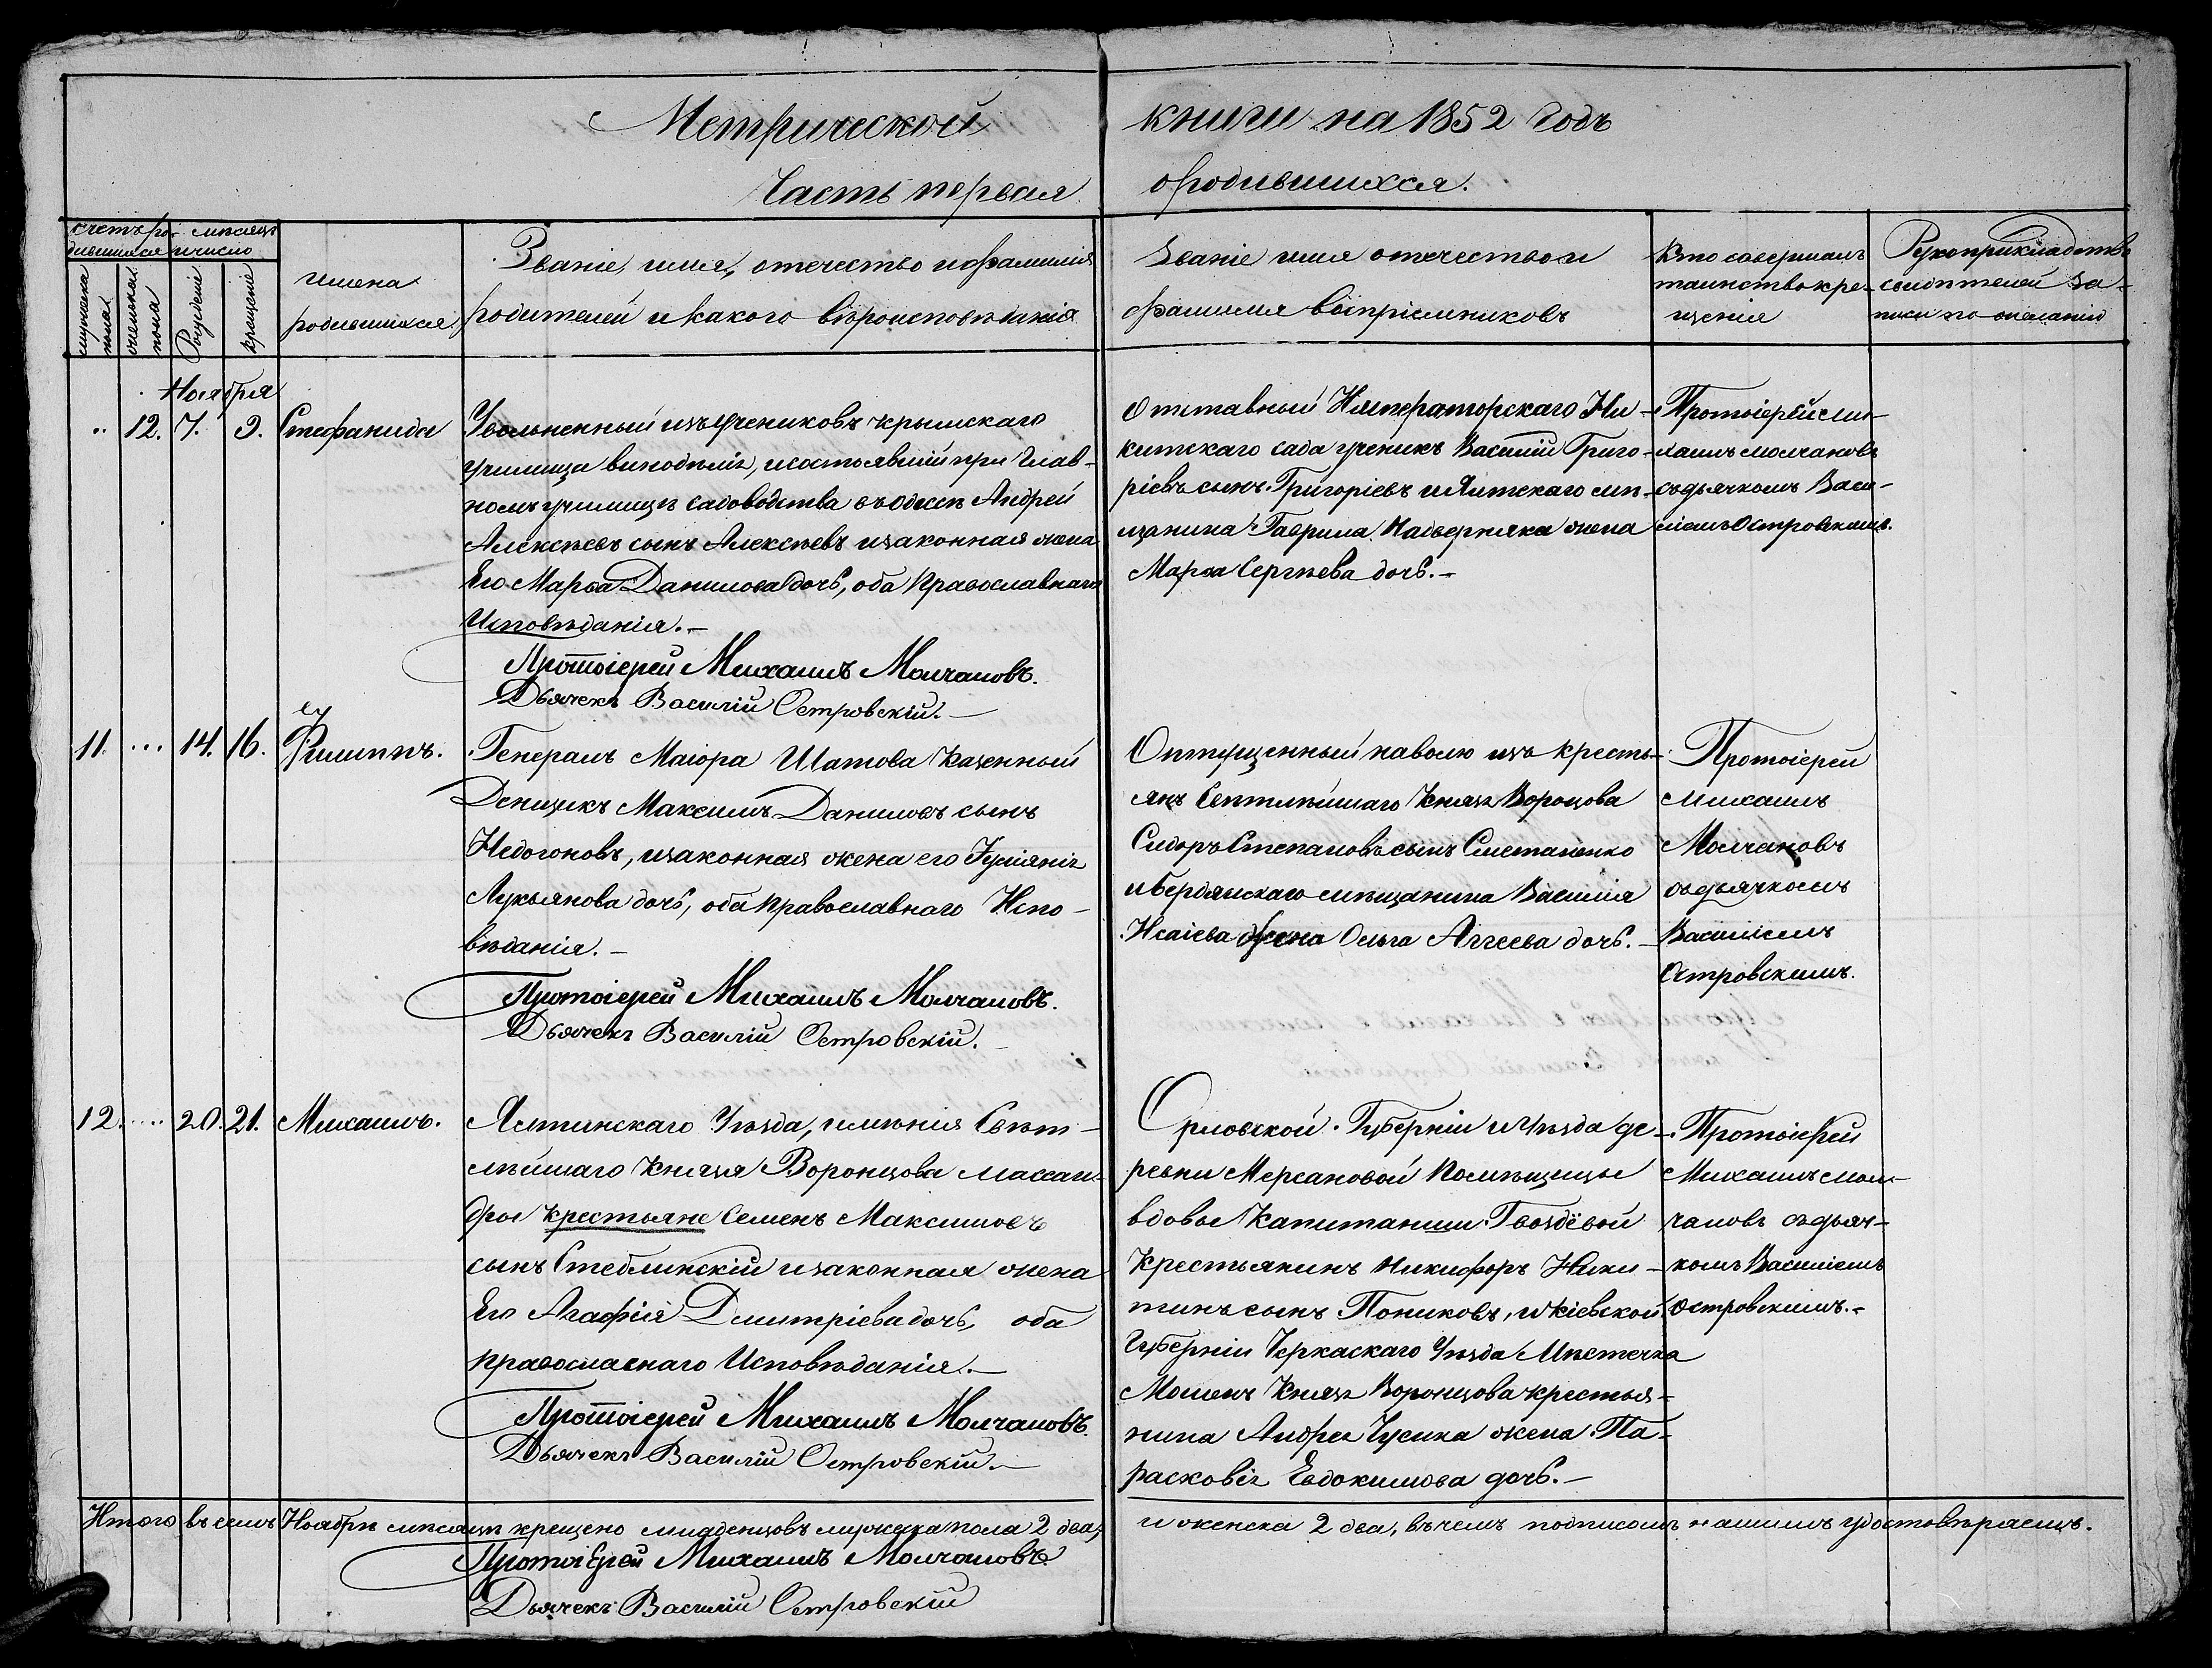 Метрической книги на 1852 годъ
Часть первая о родившихся.
счетъ ро-
дившихся
мѣсяцъ
и число
мужеска
пола
женска
пола
Рожденіе
крещеніе
имена
родившихся
Званіе, имя, отечество и фамилія
родителей и какого вѣроисповѣданія
Званіе имя отечество и
фамилія воспріемниковъ
Кто совершалъ
таинство кре-
щенія
Рукоприкладство
свидѣтелей за-
писи по желанію
Ноября
12. 7. 9. Стефанида
Уволненный изъ учениковъ крымскаго
училища винодѣлія, и состоявшій при Глав-
номъ училищѣ садоводства въ Одессѣ Андрей
Алексѣевъ сынъ Алексѣевъ и законная жена
Его Марѳа Данилова дочь, оба Православнаго
Исповѣданія.-
Протоіерей Михаилъ Молчановъ.
Дьячекъ Василій Островскій.-
Отставный Императорскаго Ни-
китскаго сада ученикъ Василій Григо-
ріевъ сынъ Григоріевъ и Ялтскаго мѣ-
щанина Гаврила Надверняка жена
Марѳа Сергѣева дочь.-
Протоіерей Ми-
хаилъ Молчановъ
съ дьячкомъ Васи-
ліемъ Островскимъ.
11. ... 14. 16. Филиппъ.
Генералъ Маіора Шатова Казенный
Денщикъ Максимъ Даниловъ сынъ
Недогоновъ, и законная жена его Іуліянія
Лукьянова дочь, оба православнаго Испо-
вѣданія.-
Протоіерей Михаилъ Молчановъ.
Дьячекъ Василій Островскій.
Отпущенный на волю изъ кресть-
янъ Свѣтлѣйшаго Князя Воронцова
Сидоръ Степановъ сынъ Сметаненко
и бердянскаго мѣщанина Василія
Исаіева жена Ольга Аггеева дочь.-
Протоіерей
Михаилъ
Молчановъ
съ дьячкомъ
Василіемъ
Островскимъ.
12. .... 20. 21. Михаилъ.
Ялтинскаго Уѣзда, имѣнія Свѣт-
лѣйшаго Князя Воронцова Массан-
дры крестьяне Семенъ Максимовъ
сынъ Стеблинскій и законная жена
Его Агафія Дмитріева дочь, оба
православнаго Исповѣданія.-
Протоіерей Михаилъ Молчановъ.
Дьячекъ Василій Островскій.-
Орловской Губерніи и Уѣзда де-
ревни Мерсановой Помѣщицы
вдовы Капитанши Гвоздёвой
Крестьянинъ Никифоръ Ники-
тинъ сынъ Пониковъ, и кіевской
Губерніи Черкаскаго Уѣзда Мѣстечка
Мошенъ Князя Воронцова крестья-
нина Андрея Гусика жена Па-
расковія Евдокимова дочь.-
Протоіерей
Михаилъ Мол-
чановъ съ дьяч-
комъ Василіемъ
Островскимъ.-
Итого въ семъ Ноябрѣ мѣсяцѣ крещено младенцовъ мужеска пола 2 два, и женска 2 два, въ чемъ подписомъ нашимъ удостовѣраемъ.
Протоіерей Михаилъ Молчановъ
Дьячекъ Василій Островскій